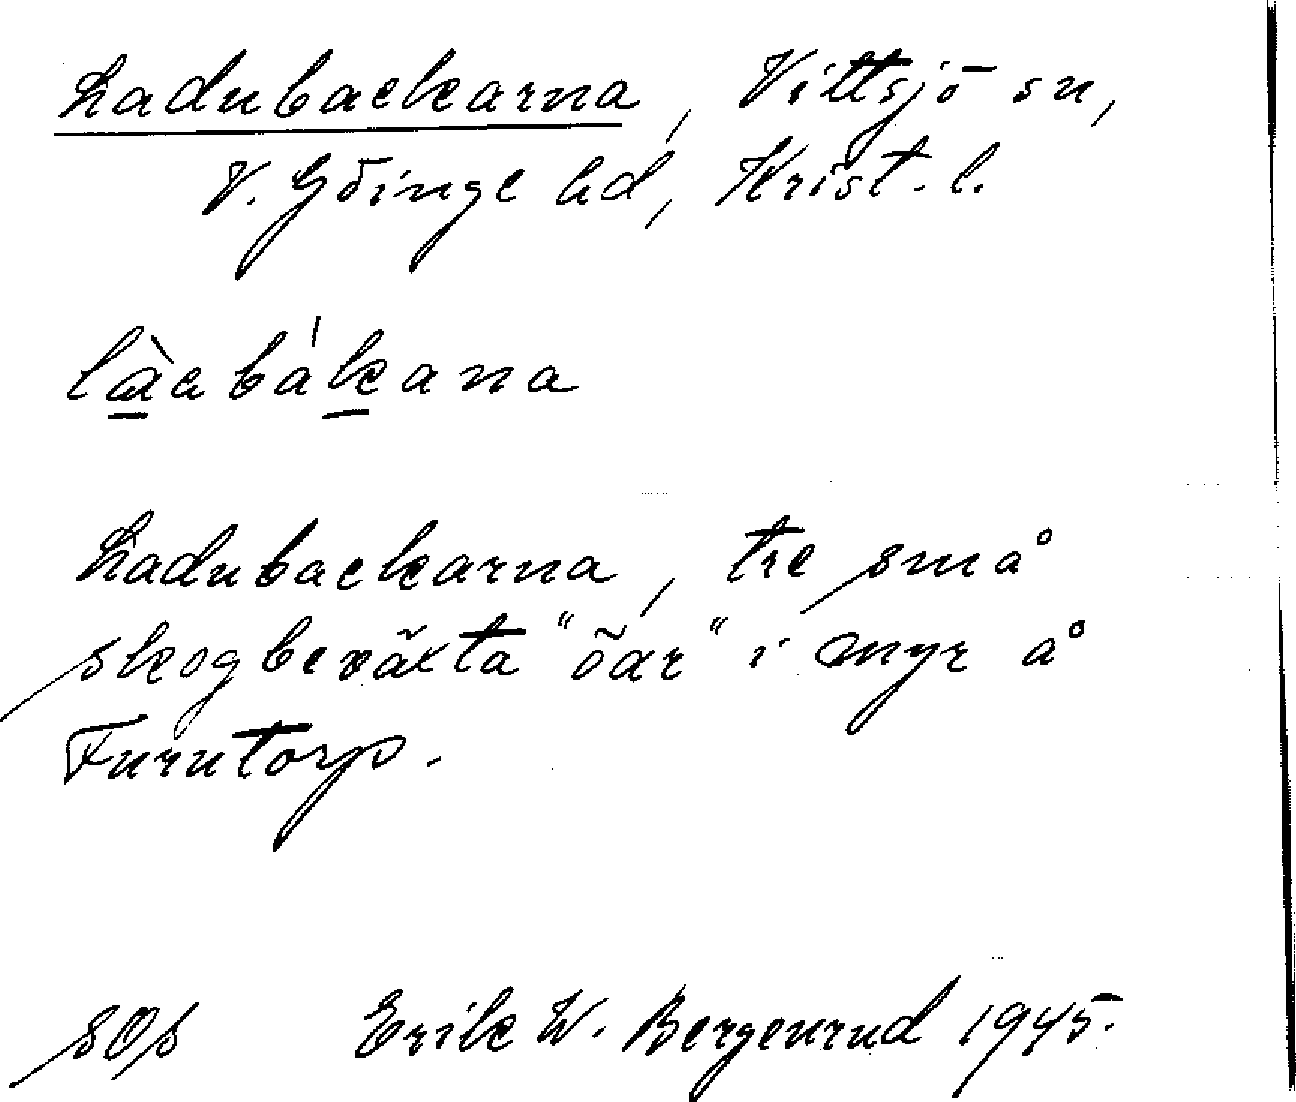 Ladubackarna, Vittsjö sn,
V. Göinge hd, Krist. l.
làabákana
Ladubackarna, tre små
skogbeväxta "öar" i myr å
Furutorp.
SOS Erik W. Bergenrud 1945.